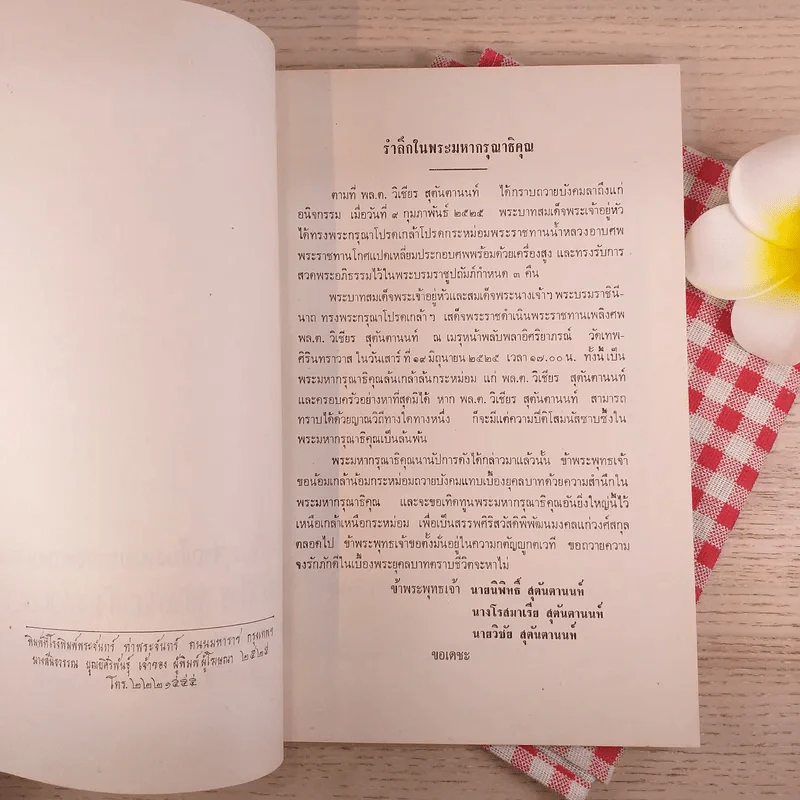 พิมพ์ที่โรงพิมพ์พระจันทร์ ท่าพระจันทร์ ถนนมหาราช กรุงเทพฯ
เจ้าของ ผู้พิมพ์ผู้โฆษณา ๒๕๒๕
โทร. ๒๒๒๑๕๕๔
รำลึกในพระมหากรุณาธิคุณ
ตามที่ พล.ต. วิเชียร สุตันตานนท์ ได้กราบถวายบังคมลาถึงแก่
อนิจกรรม เมื่อวันที่ ๙ กุมภาพันธ์ ๒๕๒๕ พระบาทสมเด็จพระเจ้าอยู่หัว
ได้ทรงพระกรุณาโปรดเกล้าโปรดกระหม่อมพระราชทานน้ำหลวงอาบศพ
พระราชทานโกศแปดเหลี่ยมประกอบศพพร้อมด้วยเครื่องสูง และทรงรับการ
สวดพระอภิธรรมไว้ในพระบรมราชูปถัมภ์กำหนด ๓ คืน
พระบาทสมเด็จพระเจ้าอยู่หัวและสมเด็จพระนางเจ้าฯ พระบรมราชินี-
นาถ ทรงพระกรุณาโปรดเกล้าฯ เสด็จพระราชดำเนินพระราชทานเพลิงศพ
พล.ต. วิเชียร สุตันตานนท์ ณ เมรุหน้าพลับพลาอิศริยาภรณ์ วัดเทพ-
ศิรินทราวาส ในวันเสาร์ ที่ ๑๙ มิถุนายน ๒๕๒๕ เวลา ๑๗.๐๐ น. ทั้งนี้ เป็น
พระมหากรุณาธิคุณล้นเกล้าล้นกระหม่อม แก่ พล.ต. วิเชียร สุตันตานนท์
และครอบครัวอย่างหาที่สุดมิได้ หาก พล.ต. วิเชียร สุตันตานนท์ สามารถ
ทราบได้ด้วยญาณวิถีทางใดทางหนึ่ง ก็จะมีแต่ความปีติโสมนัสซาบซึ้งใน
พระมหากรุณาธิคุณเป็นล้นพ้น
พระมหากรุณาธิคุณนานัปการดังได้กล่าวมาแล้วนั้น ข้าพระพุทธเจ้า
ขอน้อมเกล้าน้อมกระหม่อมถวายบังคมแทบเบื้องยุคลบาทด้วยความสำนึกใน
พระมหากรุณาธิคุณ และจะขอเทิดทูนพระมหากรุณาธิคุณอันยิ่งใหญ่นี้ไว้
เหนือเกล้าเหนือกระหม่อม เพื่อเป็นสรรพศิริสวัสดิพิพัฒนมงคลแก่วงศ์สกุล
ตลอดไป ข้าพระพุทธเจ้าขอตั้งมั่นอยู่ในความกตัญญูกตเวที ขอถวายความ
จงรักภักดีในเบื้องพระยุคลบาทตราบชีวิตจะหาไม่
ข้าพระพุทธเจ้า นายนิพิทธิ์ สุตันตานนท์
นางโรสมาเรีย สุตันตานนท์
นายวิชัย สุตันตานนท์
ขอเดชะ